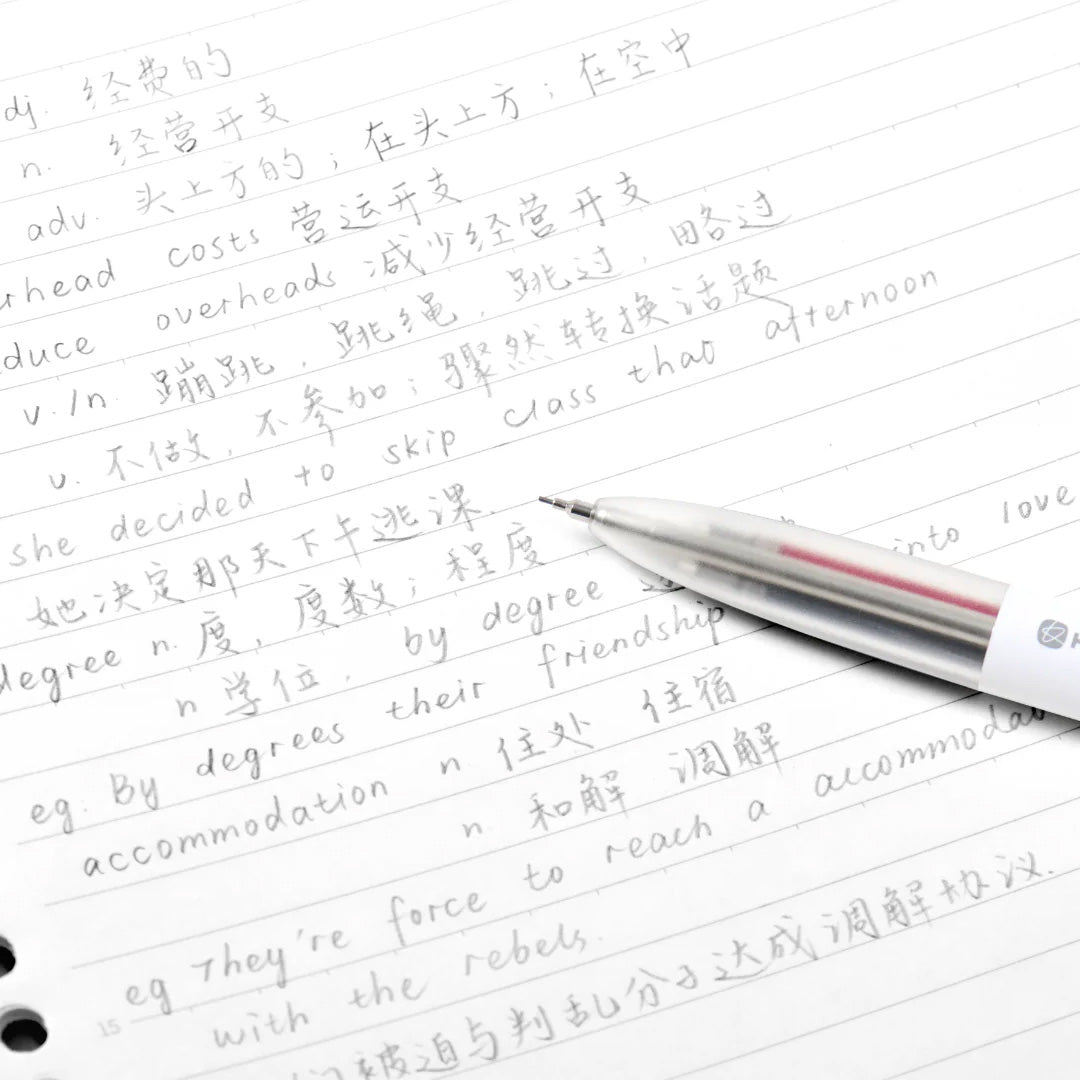 adj. 经费的
n. 经营开支
adv. 头上方的；在头上方；在空中
rhead costs 营运开支
duce overheads 减少经营开支
v./n. 蹦跳，跳绳，跳过，略过
v. 不做，不参加；骤然转换话题
she decided to skip class that afternoon
她决定那天下午逃课.
degree n. 度，度数；程度
n 学位. by degree
eg. By degrees their friendship into love
accommodation n. 住处 住宿
n. 和解 调解
eg They're force to reach a accommodat
15 with the rebels.
们被迫与判乱分子达成调解协议.